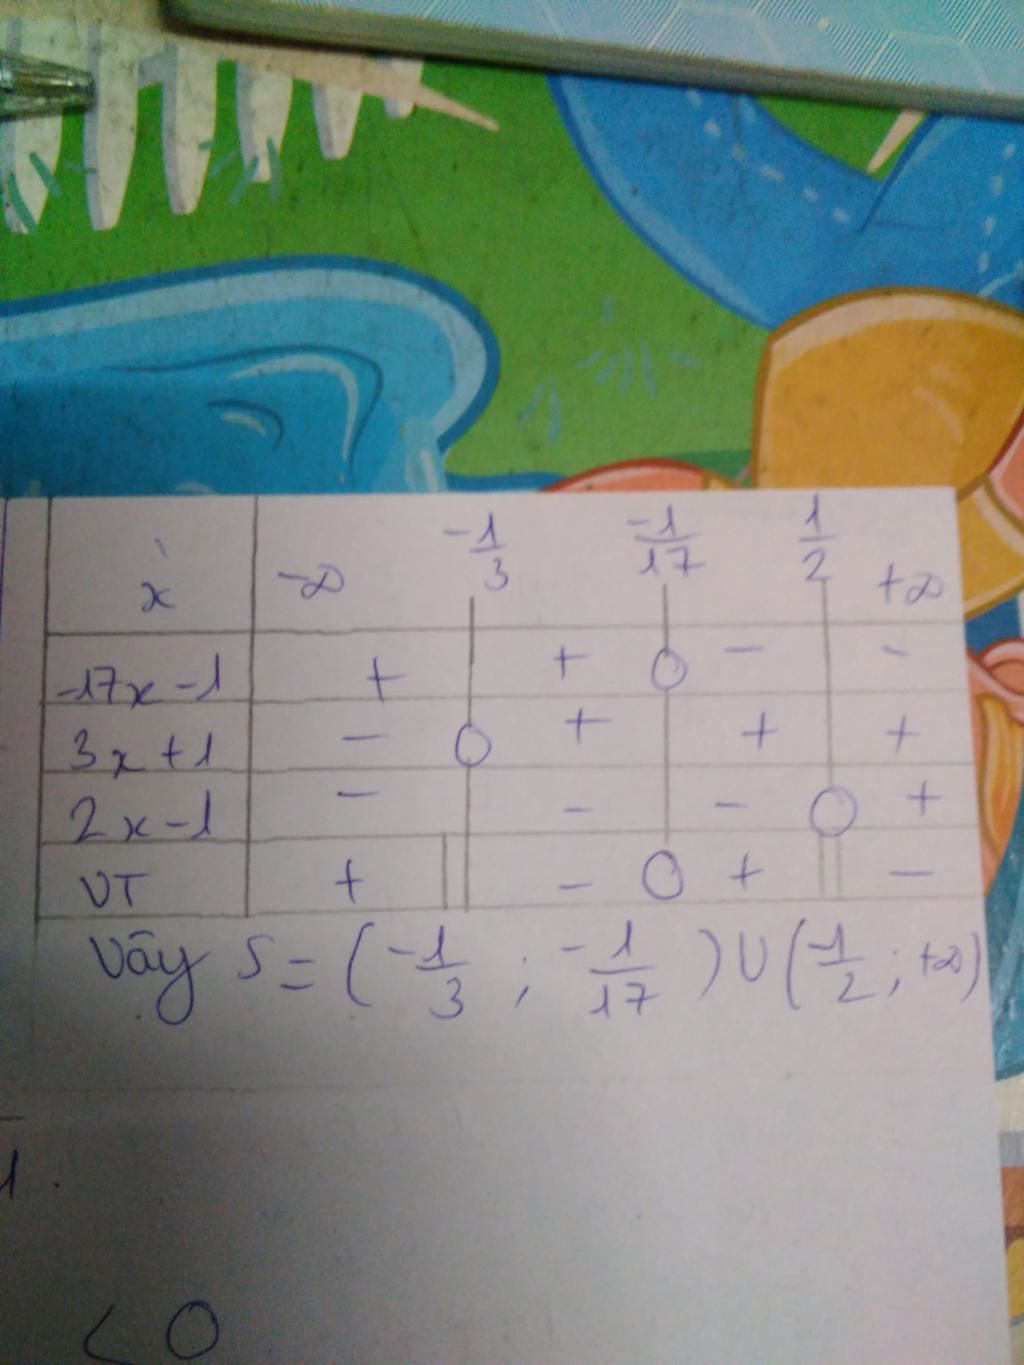 x -∞ -1/3 -1/17 1/2 +∞
-17x-1 + + 0 - -
3x+1 - 0 + + +
2x-1 - - - 0 +
VT + || - 0 + || -
Vậy S = (-1/3 ; -1/17) U (1/2 ; +∞)
1.
< 0